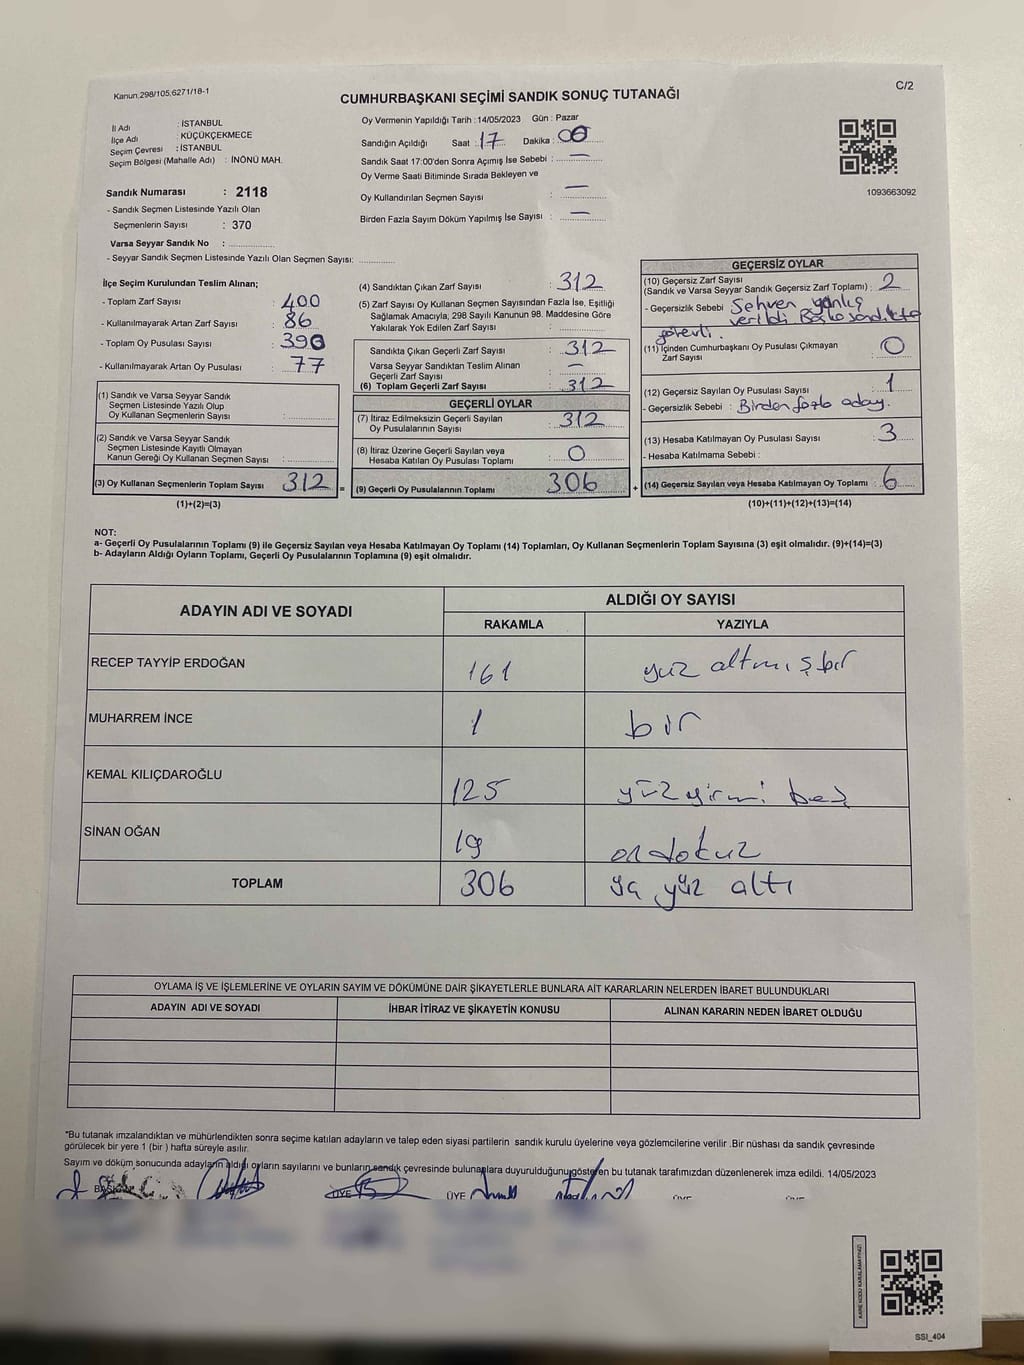 Kanun.298/105,6271/18-1
C/2
CUMHURBAŞKANI SEÇİMİ SANDIK SONUÇ TUTANAĞI
İl Adı : İSTANBUL
İlçe Adı : KÜÇÜKÇEKMECE
Seçim Çevresi : İSTANBUL
Seçim Bölgesi (Mahalle Adı) : İNÖNÜ MAH.
Sandık Numarası : 2118
- Sandık Seçmen Listesinde Yazılı Olan
Seçmenlerin Sayısı : 370
Varsa Seyyar Sandık No :
- Seyyar Sandık Seçmen Listesinde Yazılı Olan Seçmen Sayısı:
Oy Vermenin Yapıldığı Tarih : 14/05/2023 Gün : Pazar
Sandığın Açıldığı Saat : 17 Dakika : 00
Sandık Saat 17:00'den Sonra Açımış İse Sebebi : —
Oy Verme Saati Bitiminde Sırada Bekleyen ve
Oy Kullandırılan Seçmen Sayısı : —
Birden Fazla Sayım Döküm Yapılmış İse Sayısı : —
1093663092
İlçe Seçim Kurulundan Teslim Alınan;
- Toplam Zarf Sayısı : 400
- Kullanılmayarak Artan Zarf Sayısı : 86
- Toplam Oy Pusulası Sayısı : 390
- Kullanılmayarak Artan Oy Pusulası : 77
(1) Sandık ve Varsa Seyyar Sandık
Seçmen Listesinde Yazılı Olup
Oy Kullanan Seçmenlerin Sayısı :
(2) Sandık ve Varsa Seyyar Sandık
Seçmen Listesinde Kayıtlı Olmayan
Kanun Gereği Oy Kullanan Seçmen Sayısı :
(3) Oy Kullanan Seçmenlerin Toplam Sayısı : 312 =
(1)+(2)=(3)
(4) Sandıktan Çıkan Zarf Sayısı : 312
(5) Zarf Sayısı Oy Kullanan Seçmen Sayısından Fazla İse, Eşitliği
Sağlamak Amacıyla, 298 Sayılı Kanunun 98. Maddesine Göre
Yakılarak Yok Edilen Zarf Sayısı :
Sandıkta Çıkan Geçerli Zarf Sayısı : 312
Varsa Seyyar Sandıktan Teslim Alınan
Geçerli Zarf Sayısı : —
(6) Toplam Geçerli Zarf Sayısı : 312
GEÇERLİ OYLAR
(7) İtiraz Edilmeksizin Geçerli Sayılan
Oy Pusulalarının Sayısı : 312
(8) İtiraz Üzerine Geçerli Sayılan veya
Hesaba Katılan Oy Pusulası Toplamı : 0
(9) Geçerli Oy Pusulalarının Toplamı : 306 +
GEÇERSİZ OYLAR
(10) Geçersiz Zarf Sayısı
(Sandık ve Varsa Seyyar Sandık Geçersiz Zarf Toplamı) : 2
- Geçersizlik Sebebi : Sehven yanlış
verildi Başka sandıkta
görevli.
(11) İçinden Cumhurbaşkanı Oy Pusulası Çıkmayan
Zarf Sayısı : 0
(12) Geçersiz Sayılan Oy Pusulası Sayısı : 1
- Geçersizlik Sebebi : Birden fazla aday.
(13) Hesaba Katılmayan Oy Pusulası Sayısı : 3
- Hesaba Katılmama Sebebi :
(14) Geçersiz Sayılan veya Hesaba Katılmayan Oy Toplamı : 6
(10)+(11)+(12)+(13)=(14)
NOT:
a- Geçerli Oy Pusulalarının Toplamı (9) ile Geçersiz Sayılan veya Hesaba Katılmayan Oy Toplamı (14) Toplamları, Oy Kullanan Seçmenlerin Toplam Sayısına (3) eşit olmalıdır. (9)+(14)=(3)
b- Adayların Aldığı Oyların Toplamı, Geçerli Oy Pusulalarının Toplamına (9) eşit olmalıdır.
ADAYIN ADI VE SOYADI
ALDIĞI OY SAYISI
RAKAMLA YAZIYLA
RECEP TAYYİP ERDOĞAN 161 yüz altmış bir
MUHARREM İNCE 1 bir
KEMAL KILIÇDAROĞLU 125 yüz yirmi beş
SİNAN OĞAN 19 on dokuz
TOPLAM 306 yüz altı
OYLAMA İŞ VE İŞLEMLERİNE VE OYLARIN SAYIM VE DÖKÜMÜNE DAİR ŞİKAYETLERLE BUNLARA AİT KARARLARIN NELERDEN İBARET BULUNDUKLARI
ADAYIN ADI VE SOYADI İHBAR İTİRAZ VE ŞİKAYETİN KONUSU ALINAN KARARIN NEDEN İBARET OLDUĞU
*Bu tutanak imzalandıktan ve mühürlendikten sonra seçime katılan adayların ve talep eden siyasi partilerin sandık kurulu üyelerine veya gözlemcilerine verilir .Bir nüshası da sandık çevresinde
görülecek bir yere 1 (bir ) hafta süreyle asılır.
Sayım ve döküm sonucunda adayların aldığı oyların sayılarını ve bunların sandık çevresinde bulunanlara duyurulduğunu gösteren bu tutanak tarafımızdan düzenlenerek imza edildi. 14/05/2023
BAŞKAN ÜYE ÜYE ÜYE ÜYE
KARE KODU KARALAMAYINIZ!
SSI_404